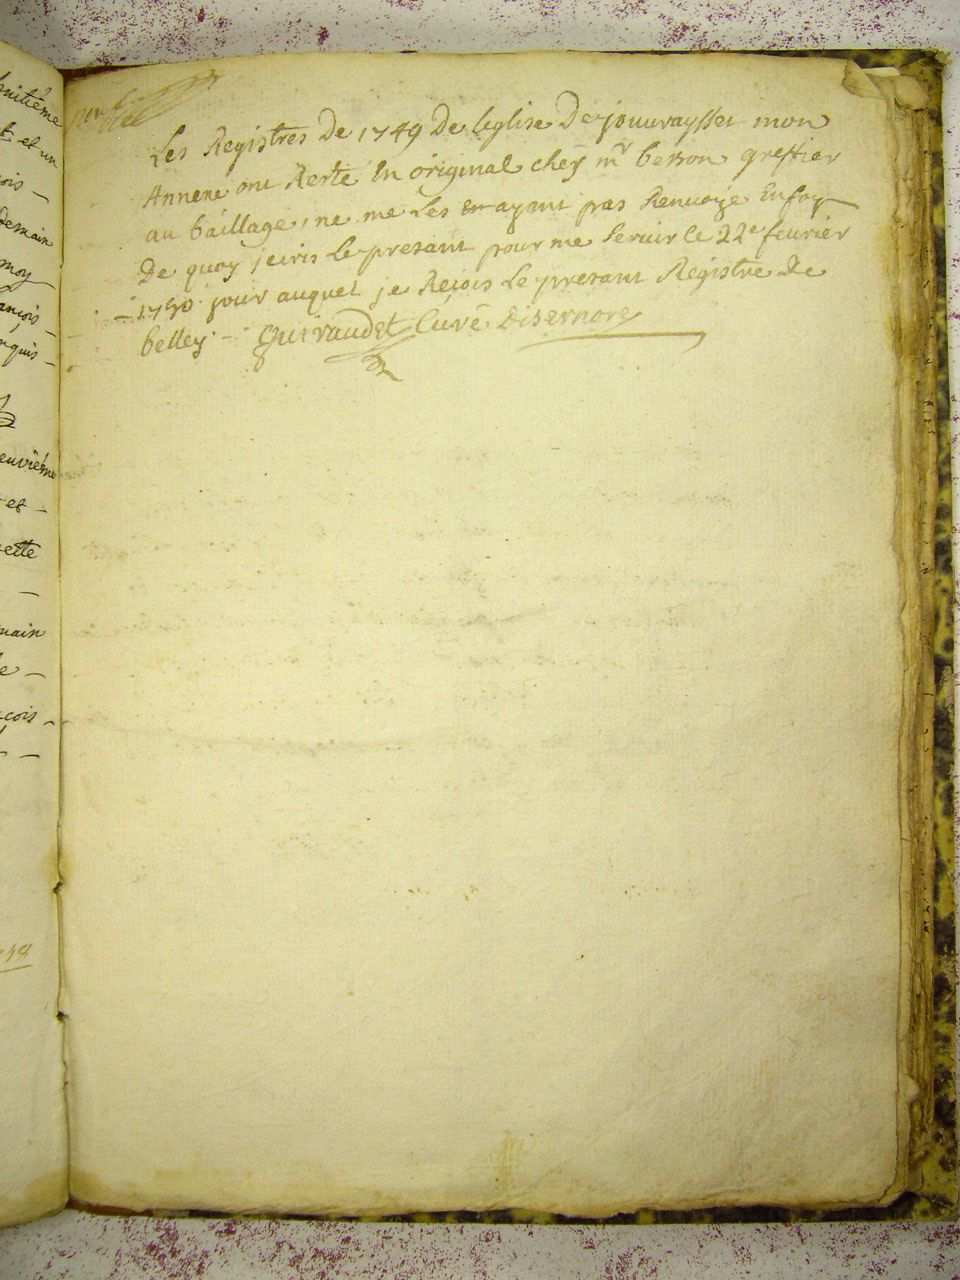 huitième
et un
ois —
demain
moy
ançois —
rquis —
euvième
et —
cette
—
main
e —
çois —
Les Registres De 1749 De leglise De jouuraysset mon
Annexe ont Resté En original chéz mr besson greffier
au baillage, ne me les ayant pas Renuoÿé En foy
De quoy jeiris le presant pour me seruir le 22e feurier
— 1750 jour auquel je Reçois Le presant Registre de
belley — Guiraudet Curé Disernore